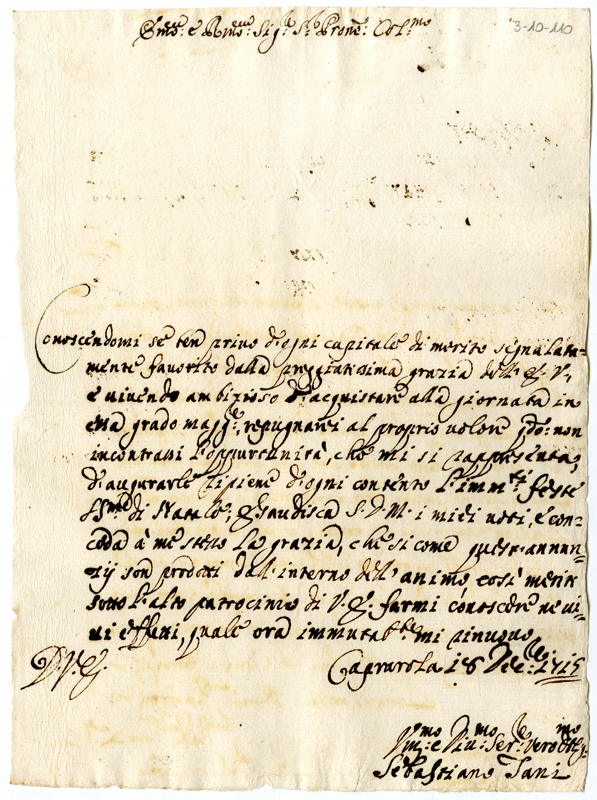 3-10-110
Em:mo e R:mo Sig:r S:r Prone: Col:mo
Conoscendomi se ben privo d'ogni capitale di merito segnalata=
mente favorito dalla pregiatissima grazia dell' E. V.,
e vivendo ambizioso d'acquistare alla giornata in
essa grado magg:re, repugnarei al proprio volere q:do: non
incontrassi l'oppurtunità, che mi si rappresenta,
d'augurarle ripiene d'ogni contento l'imm:ti feste
SS:me di Natale; Esaudisca S. D. M. i miei voti, e con=
ceda à me stesso la grazia, che si come questi annun=
zij son prodotti dall' interno dell' animo così meriti
sotto l'alto patrocinio di V. E. farmi conoscere ne vi=
vi effetti, quale ora immutab:te mi rinuovo
D. V. E.
Caprarola 18 Xbre: 1715
Um:mo e Div:mo Ser:re vero Obblig:mo
Sebastiano Tani